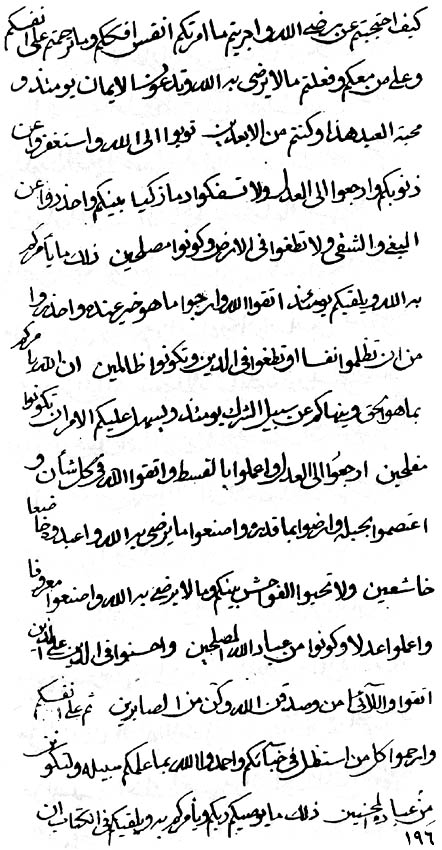 كيف احتجبتم عن رضى الله واجريتم ما امرتكم انفس افككم وما ترحمتم على انفسكم
وعلى من معكم وفعلتم ما لا يرضى به الله وتدعون الايمان يومئذ و
محبة العبد هذا وكنتم من الابعدين توبوا الى الله واستغفروا عن
ذنوبكم وارجعوا الى العدل ولا تسفكوا دما زكيا بينكم واحذروا عن
البغي والشقى ولا تطغوا فى الارض وكونوا مصلحين ذلك ما يأمركم
به الله ويلقيكم يومئذ اتقوا الله وارجوا ما هو خير عنده واحذروا
من ان تظلموا نفسا او تطغوا فى الدين وتكونوا ظالمين ان الله يأمركم
بما هو الحق وينهاكم عن سبيل الشرك يومئذ ويسهل عليكم الامر ان تكونوا
مفلحين ارجعوا الى العدل واعملوا بالقسط واتقوا الله فى كل شأن و
اعتصموا بحبله وارضوا بما قدره واصنعوا ما يرضى به الله واعبدوه خاضعا
خاشعين ولا تحبوا الفواحش بينكم وما لا يرضى به الله واصنعوا معروفا
واعملوا عدلا وكونوا من عباد الله المصلحين واحسنوا فى الدين على الذين
اتقوا واللائى من وصدقن الله وكن من الصابرين ثم على انفسكم
وارحموا كل من استظل فى حياتكم واحمدوا الله بما علمكم سبيله ولتكونن
من عباد المحسنين ذلك ما يوصيكم ربكم ويأمركم به ويلقيكم فى الكتاب ان
١٩٦